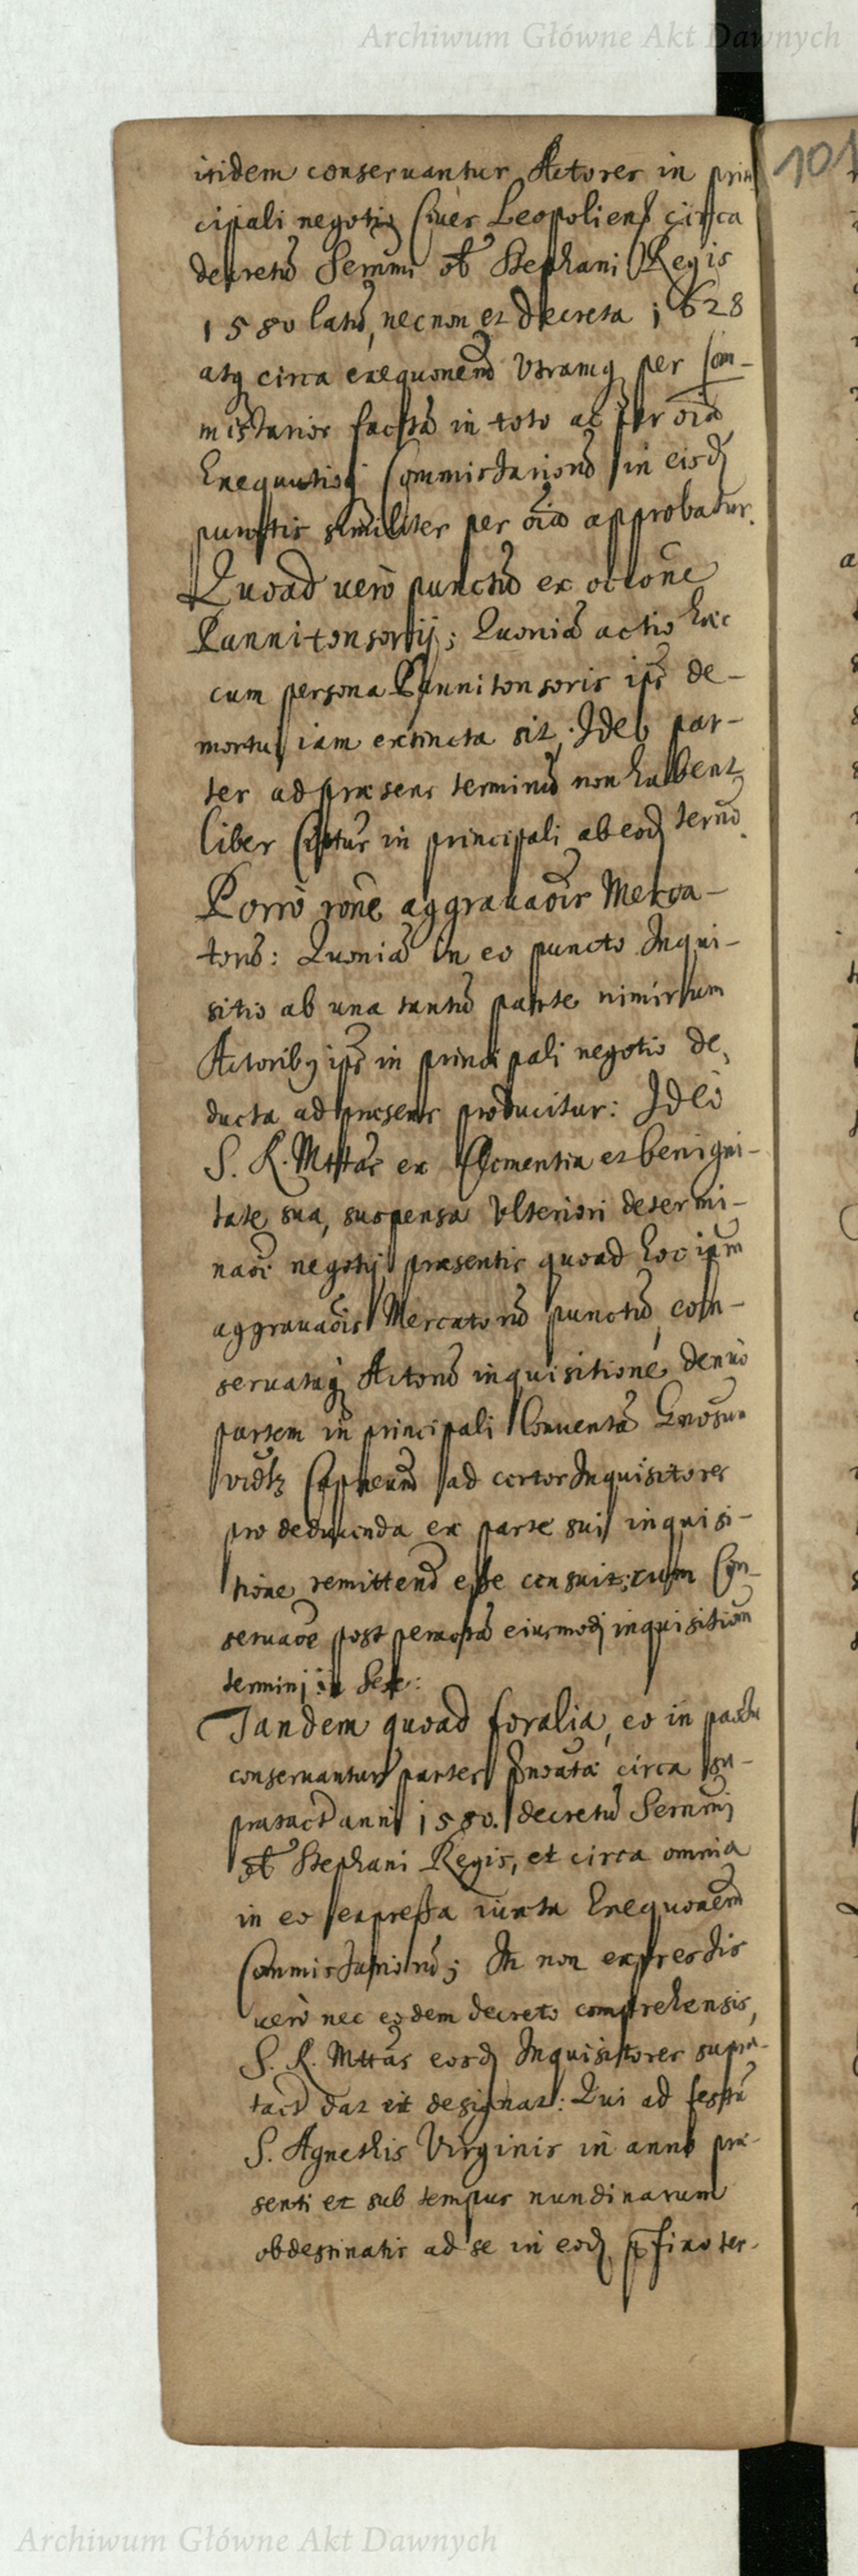 Archiwum Główne Akt Dawnych
101
itidem conseruantur Actores in prin
cipali negotio Ciues Leopolien circa
decretũ Sermi ol Stephani Regis
1580 latũ, nec non et decreta 1628
atq circa exequonem utramq per Com-
missarios factã in toto ac per oia
Exequutioq Commissarionũ in eisd
punctis similiter per oia approbatur.
Quoad uerò punctũ ex occone
Pannitonsorij; Quoniã actio haec
cum persona Pannitonsoris ips de-
mortui iam extincta sit, Ideo par-
tes ad præsens terminũ non habent
liber Cittus in principali ab eod termo.
Porrò rone aggrauaois Merca-
torũ: Quoniã in eo puncto Inqui-
sitio ab una tantũ parte nimirum
Actorib9 ips in principali negotio de,
ducta ad præsens producitur: Ideò
S. R. Mttas ex Clementia et benigni-
tate sua, suspensa Ulteriori determi-
naoe negotij præsentis quoad hoc ipm
aggrauaois Mercatorũ punctũ, con-
seruataq Actorũ inquisitione, denuò
partem in principali Conuentã Gnosum
uidlz Capneum ad certos Inquisitores
pro deducenda ex parte sui inquisi-
tione remittend esse censuit; cum Con-
seruaoe post peractã eiusmodi inquisitiom
termini in
Tandem quoad foralia, eo in passu
conseruantur partes pnoutã circa su-
pratact anni 1580. decretũ Sermi
ol Stephani Regis, et circa omnia
in eo expressa iuxta Exequonem
Commissariorũ; In non expressis
uerò nec eodem decreto comprehensis,
S. R. Mttas eosd Inquisitores supra-
tact dat et designat: Qui ad festũ
S. Agnethis Virginis in anno præ-
senti et sub tempus nundinarum
obdestinatis ad se in eod pfixo ter-
Archiwum Główne Akt Dawnych